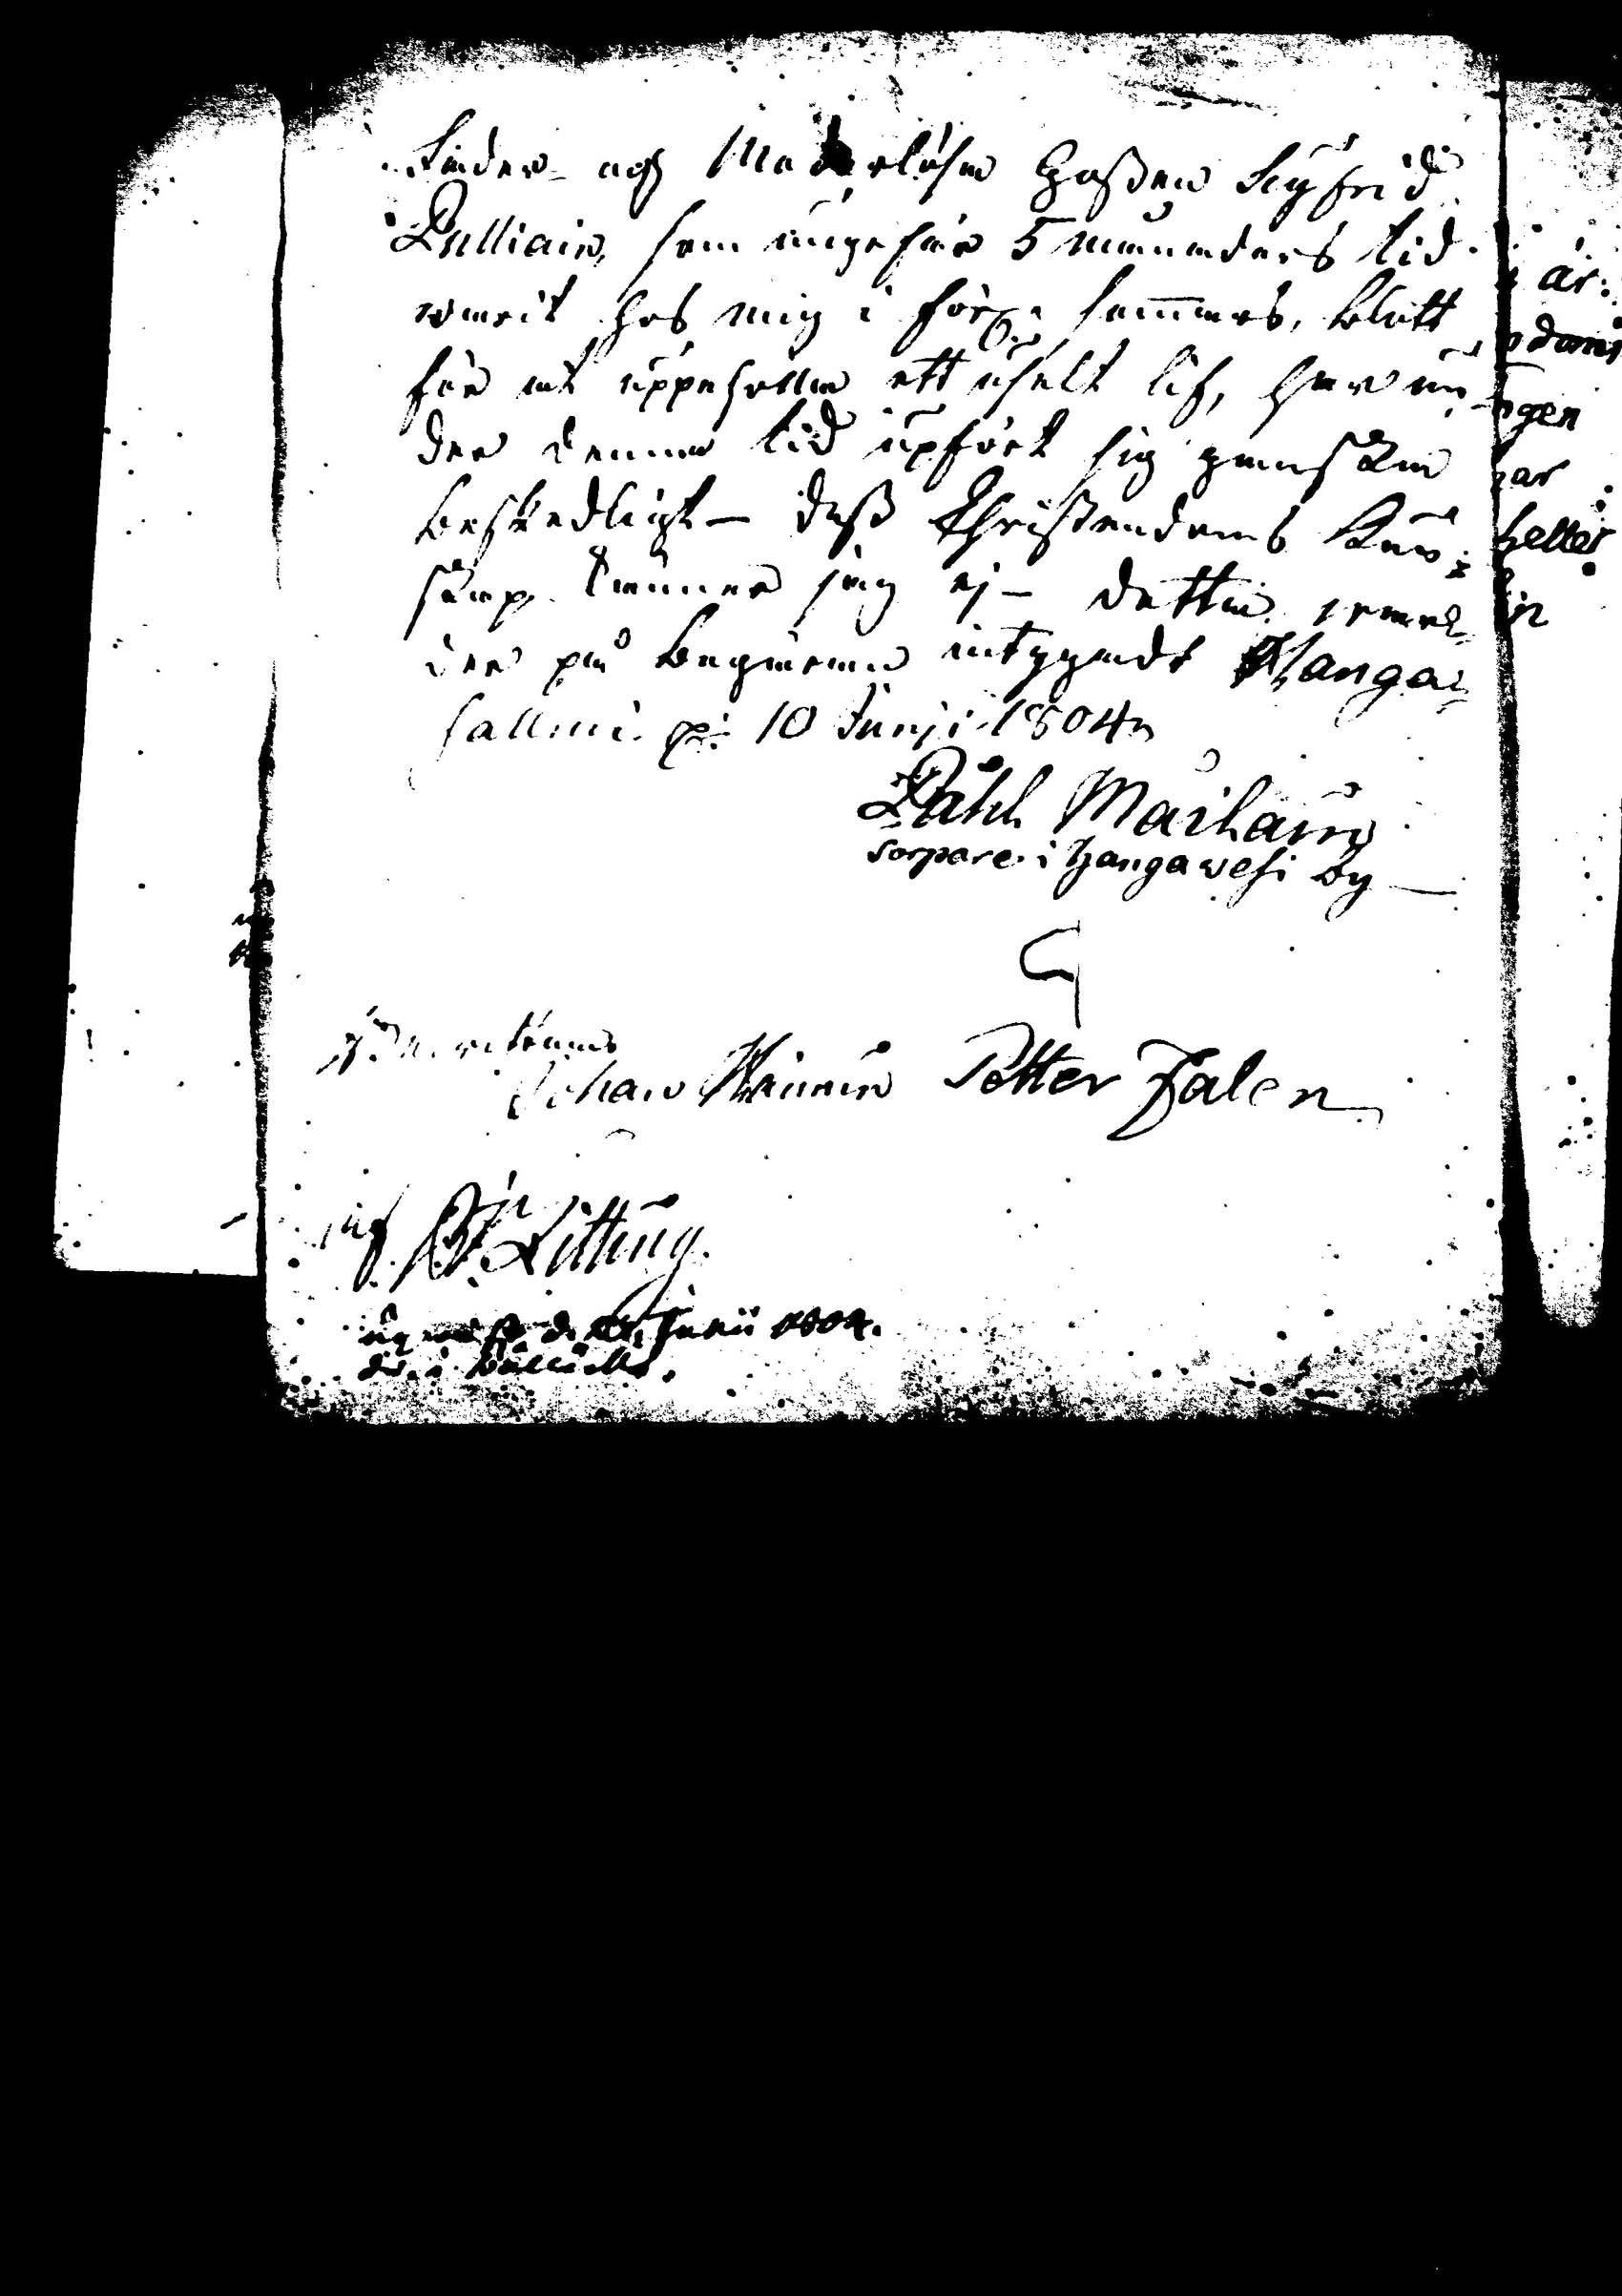 Fader- och Moderlöse Gossen Sigfrid
Pulliain, som ungefär 5 månaders tid
warit hos mig i förra sommars, blott
för at uppehålla ett uselt lif, har un-
der denna tid upfört sig ganska
beskedligt – dess Christendoms Kun-
skap känner jag ej – detta warder
på begäran intygadt Hanga-
salmi 10 Junji 1804
Påhl Maihain
Torpare i Hangawesi By
Johan Petter Falen
Kitting
d. Junii 1804.
är.
gen
har
heller